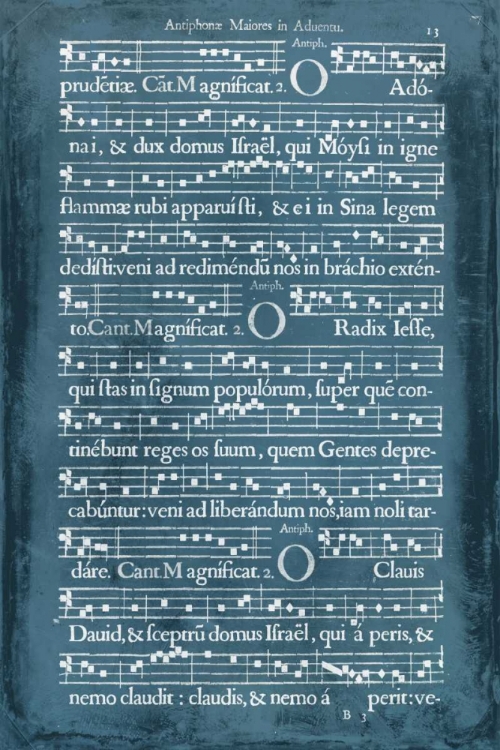 Antiphonæ Maiores in Aduentu.
13
Antiph.
prudẽtiæ. Cãt. Magníficat. 2. O Adó-
nai, & dux domus Iſraël, qui Móyſi in igne
flammæ rubi apparuíſti, & ei in Sina legem
dedíſti: veni ad rediméndũ nos in bráchio extén-
Antiph.
to. Cant. Magníficat. 2. O Radix Ieſſe,
qui ſtas in ſignum populórum, ſuper quẽ con-
tinébunt reges os ſuum, quem Gentes depre-
cabúntur: veni ad liberándum nos, iam noli tar-
Antiph.
dáre. Cant. Magníficat. 2. O Clauis
Dauid, & ſceptrũ domus Iſraël, qui áperis, &
nemo claudit: claudis, & nemo áperit: ve-
B 3